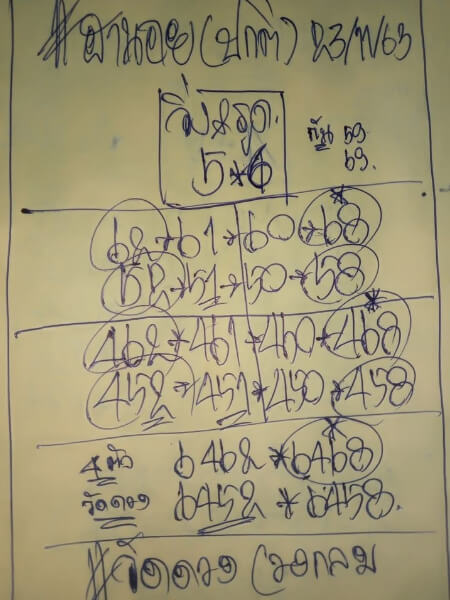 #ฮานอย(ปกติ) 23/11/63
วิ่งรูด.
5*6
กัน 59
69.
62*61*60*68
52*51*50*58
462*461*460*468
452*451*450*458
4 ตัว 6462*6468
วัดดวง 6452*6458.
#วัดดวง